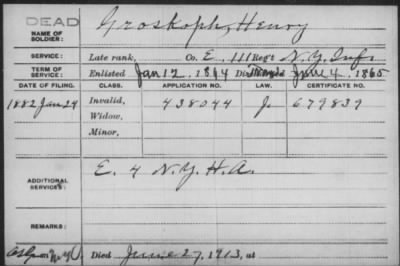 DEAD
NAME OF SOLDIER: Groskoph, Henry
SERVICE: Late rank, Co. E, 111 Reg't N.Y. Inf.
TERM OF SERVICE: Enlisted Jan 12, 1864 June 4, 1865
DATE OF FILING. CLASS. APPLICATION NO. LAW. CERTIFICATE NO.
1882 Jan 24 Invalid, 438044 J. 679839
Widow,
Minor,
ADDITIONAL SERVICES: E. 4 N.Y.H.A.
REMARKS:
Died June 27, 1913, at